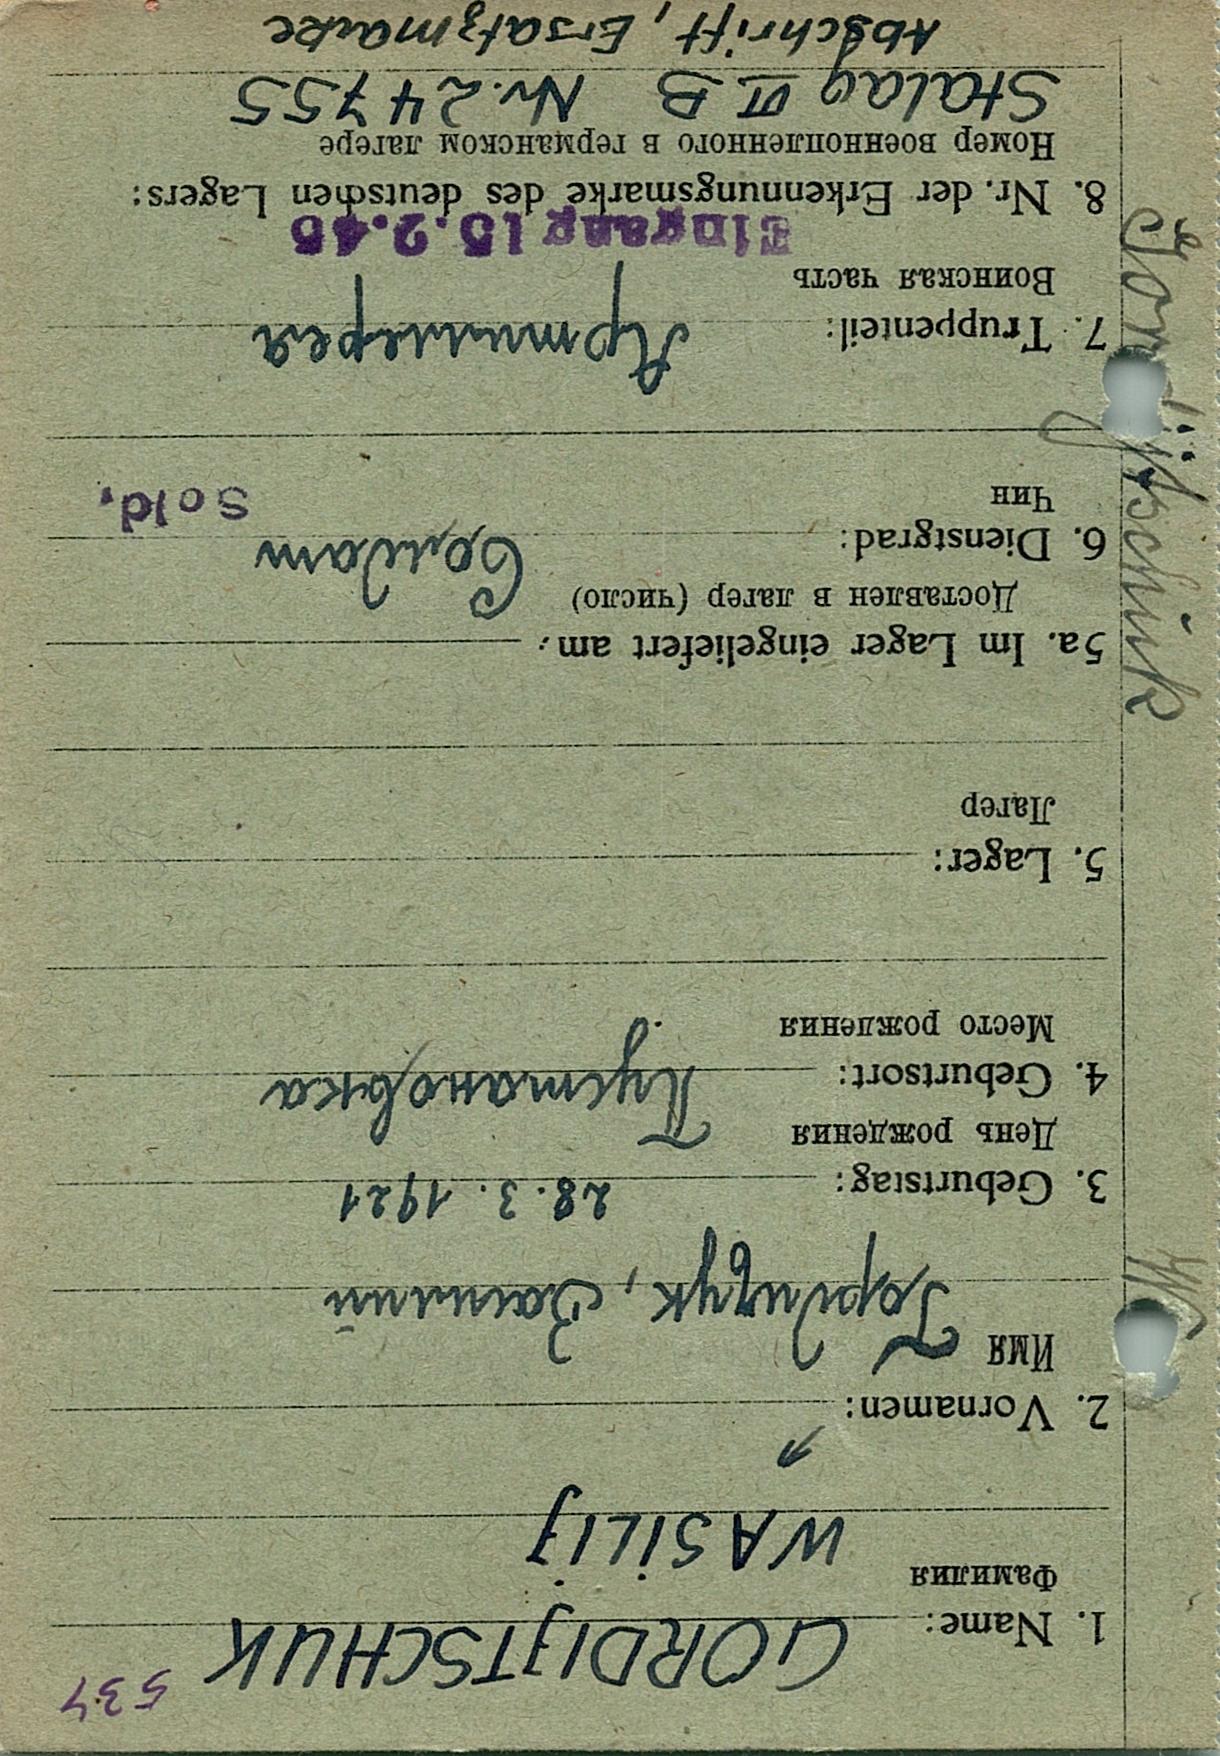 534
1. Name: GORDIJTSCHUK
Фамилия
WASILIJ
2. Vornamen:
Имя Гордийчук, Василий
3. Geburtstag: 28.3.1921
День рождения
4. Geburtsort: Пустановка
Место рождения
5. Lager:
Лагер
5a. Im Lager eingeliefert am:
Доставлен в лагер (число)
6. Dienstgrad: Солдат
Чин Sold.
7. Truppenteil: Артилерея
Воинская часть
Eingang 15.2.45
8. Nr. der Erkennungsmarke des deutschen Lagers:
Номер военнопленного в германском лагере
Stalag VI B Nr. 24755
Abschrift, Ersatzmarke
Gordijtschuk